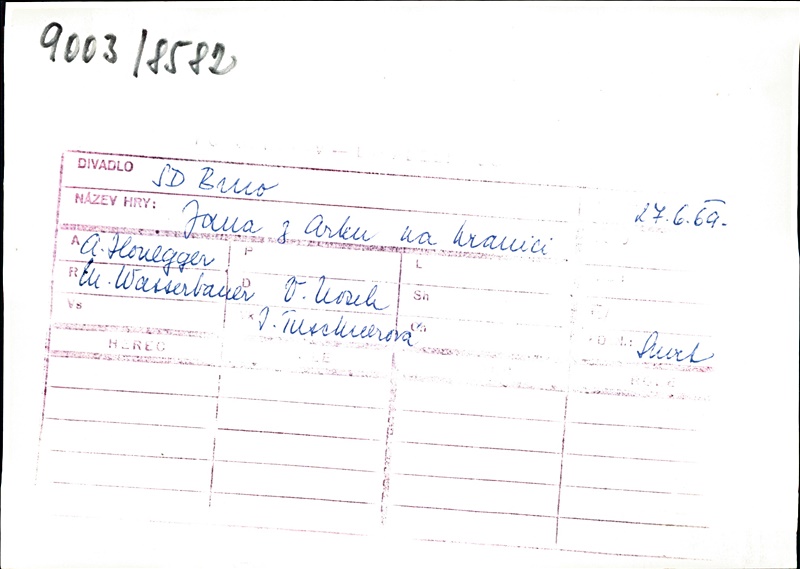 9003/8582
DIVADLO SD Brno
NÁZEV HRY: Jana z Arku na hranici 27.6.69.
A A. Honegger P L
R M. Wasserbauer D V. Nosek Sn
Vs J. Tuschnerová
HEREC